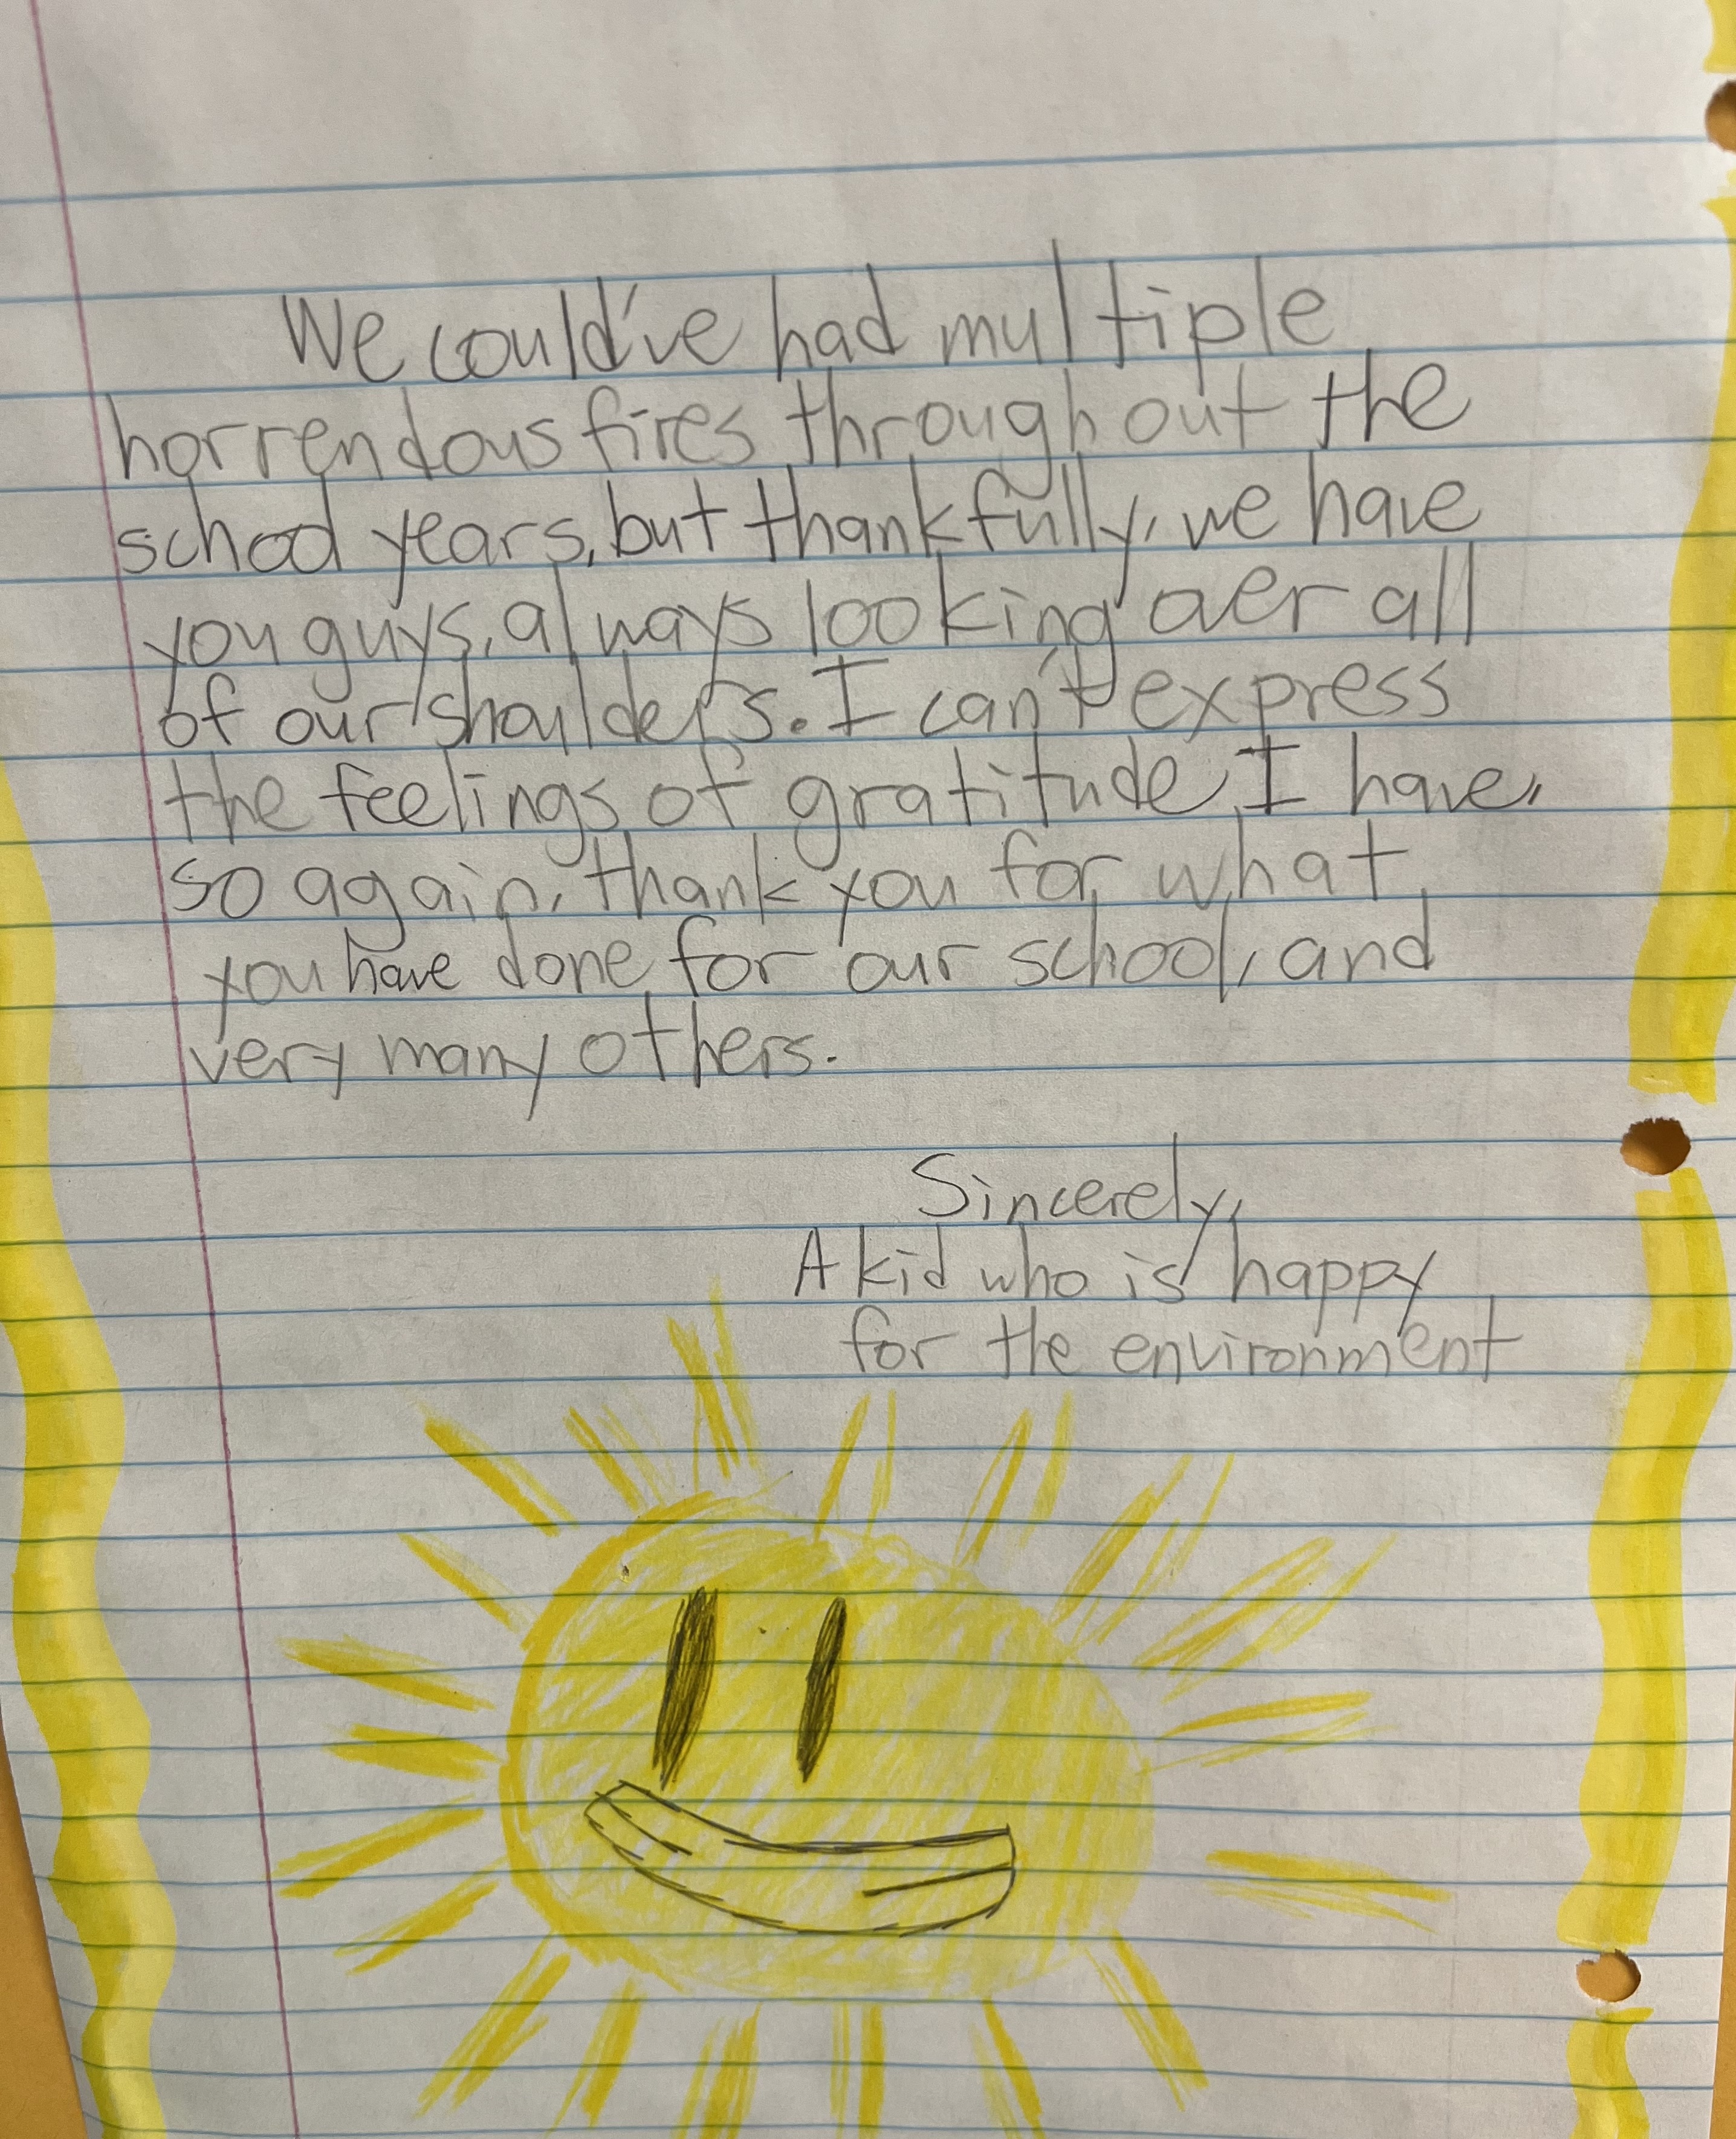 We could've had multiple
horrendous fires throughout the
school years, but thankfully, we have
you guys, always looking over all
of our shoulders. I can't express
the feelings of gratitude I have,
so again, thank you for what
you have done for our school, and
very many others.
Sincerely,
A kid who is happy
for the environment